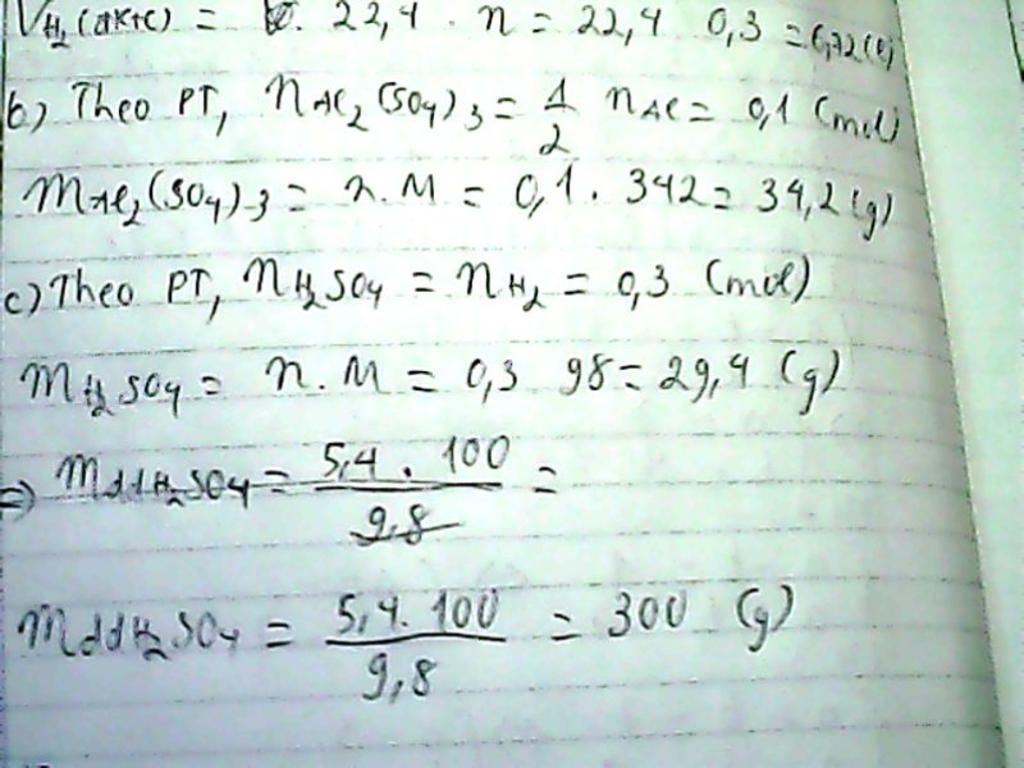 VH₂(đktc) = 22,4 . n = 22,4 0,3 = 6,72(l)
b) Theo PT, nAl₂(SO₄)₃ = 1/2 nAl = 0,1 (mol)
mAl₂(SO₄)₃ = n.M = 0,1 . 342 = 34,2 (g)
c) Theo PT, nH₂SO₄ = nH₂ = 0,3 (mol)
mH₂SO₄ = n.M = 0,3 98 = 29,4 (g)
=) mddH₂SO₄ = 5,4 . 100 / 9,8 =
mddH₂SO₄ = 5,4 . 100 / 9,8 = 300 (g)